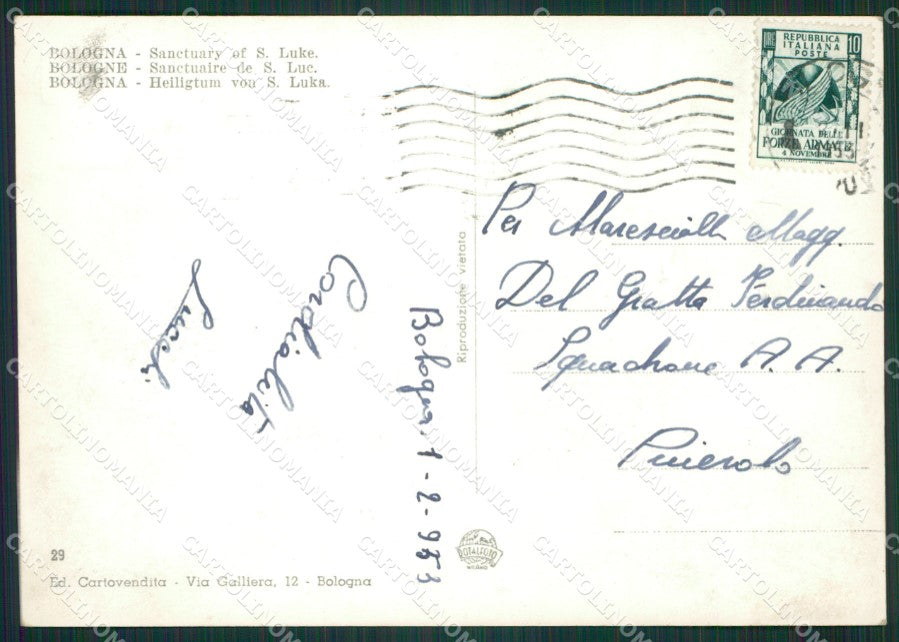 BOLOGNA - Sanctuary of S. Luke.
BOLOGNE - Sanctuaire de S. Luc.
BOLOGNA - Heiligtum von S. Luka.
REPUBBLICA
ITALIANA
POSTE
LIRE 10
GIORNATA DELLE
FORZE ARMATE
4 NOVEMBRE
Per Maresciallo Magg.
Del Gratta Ferdinando
Squadrone A. A.
Pinerolo
Cordialità
Bologna, 1-2-953
Riproduzione vietata
ROTALFOTO
MILANO
29
Ed. Cartovendita - Via Galliera, 12 - Bologna
CARTOLINOMANIA